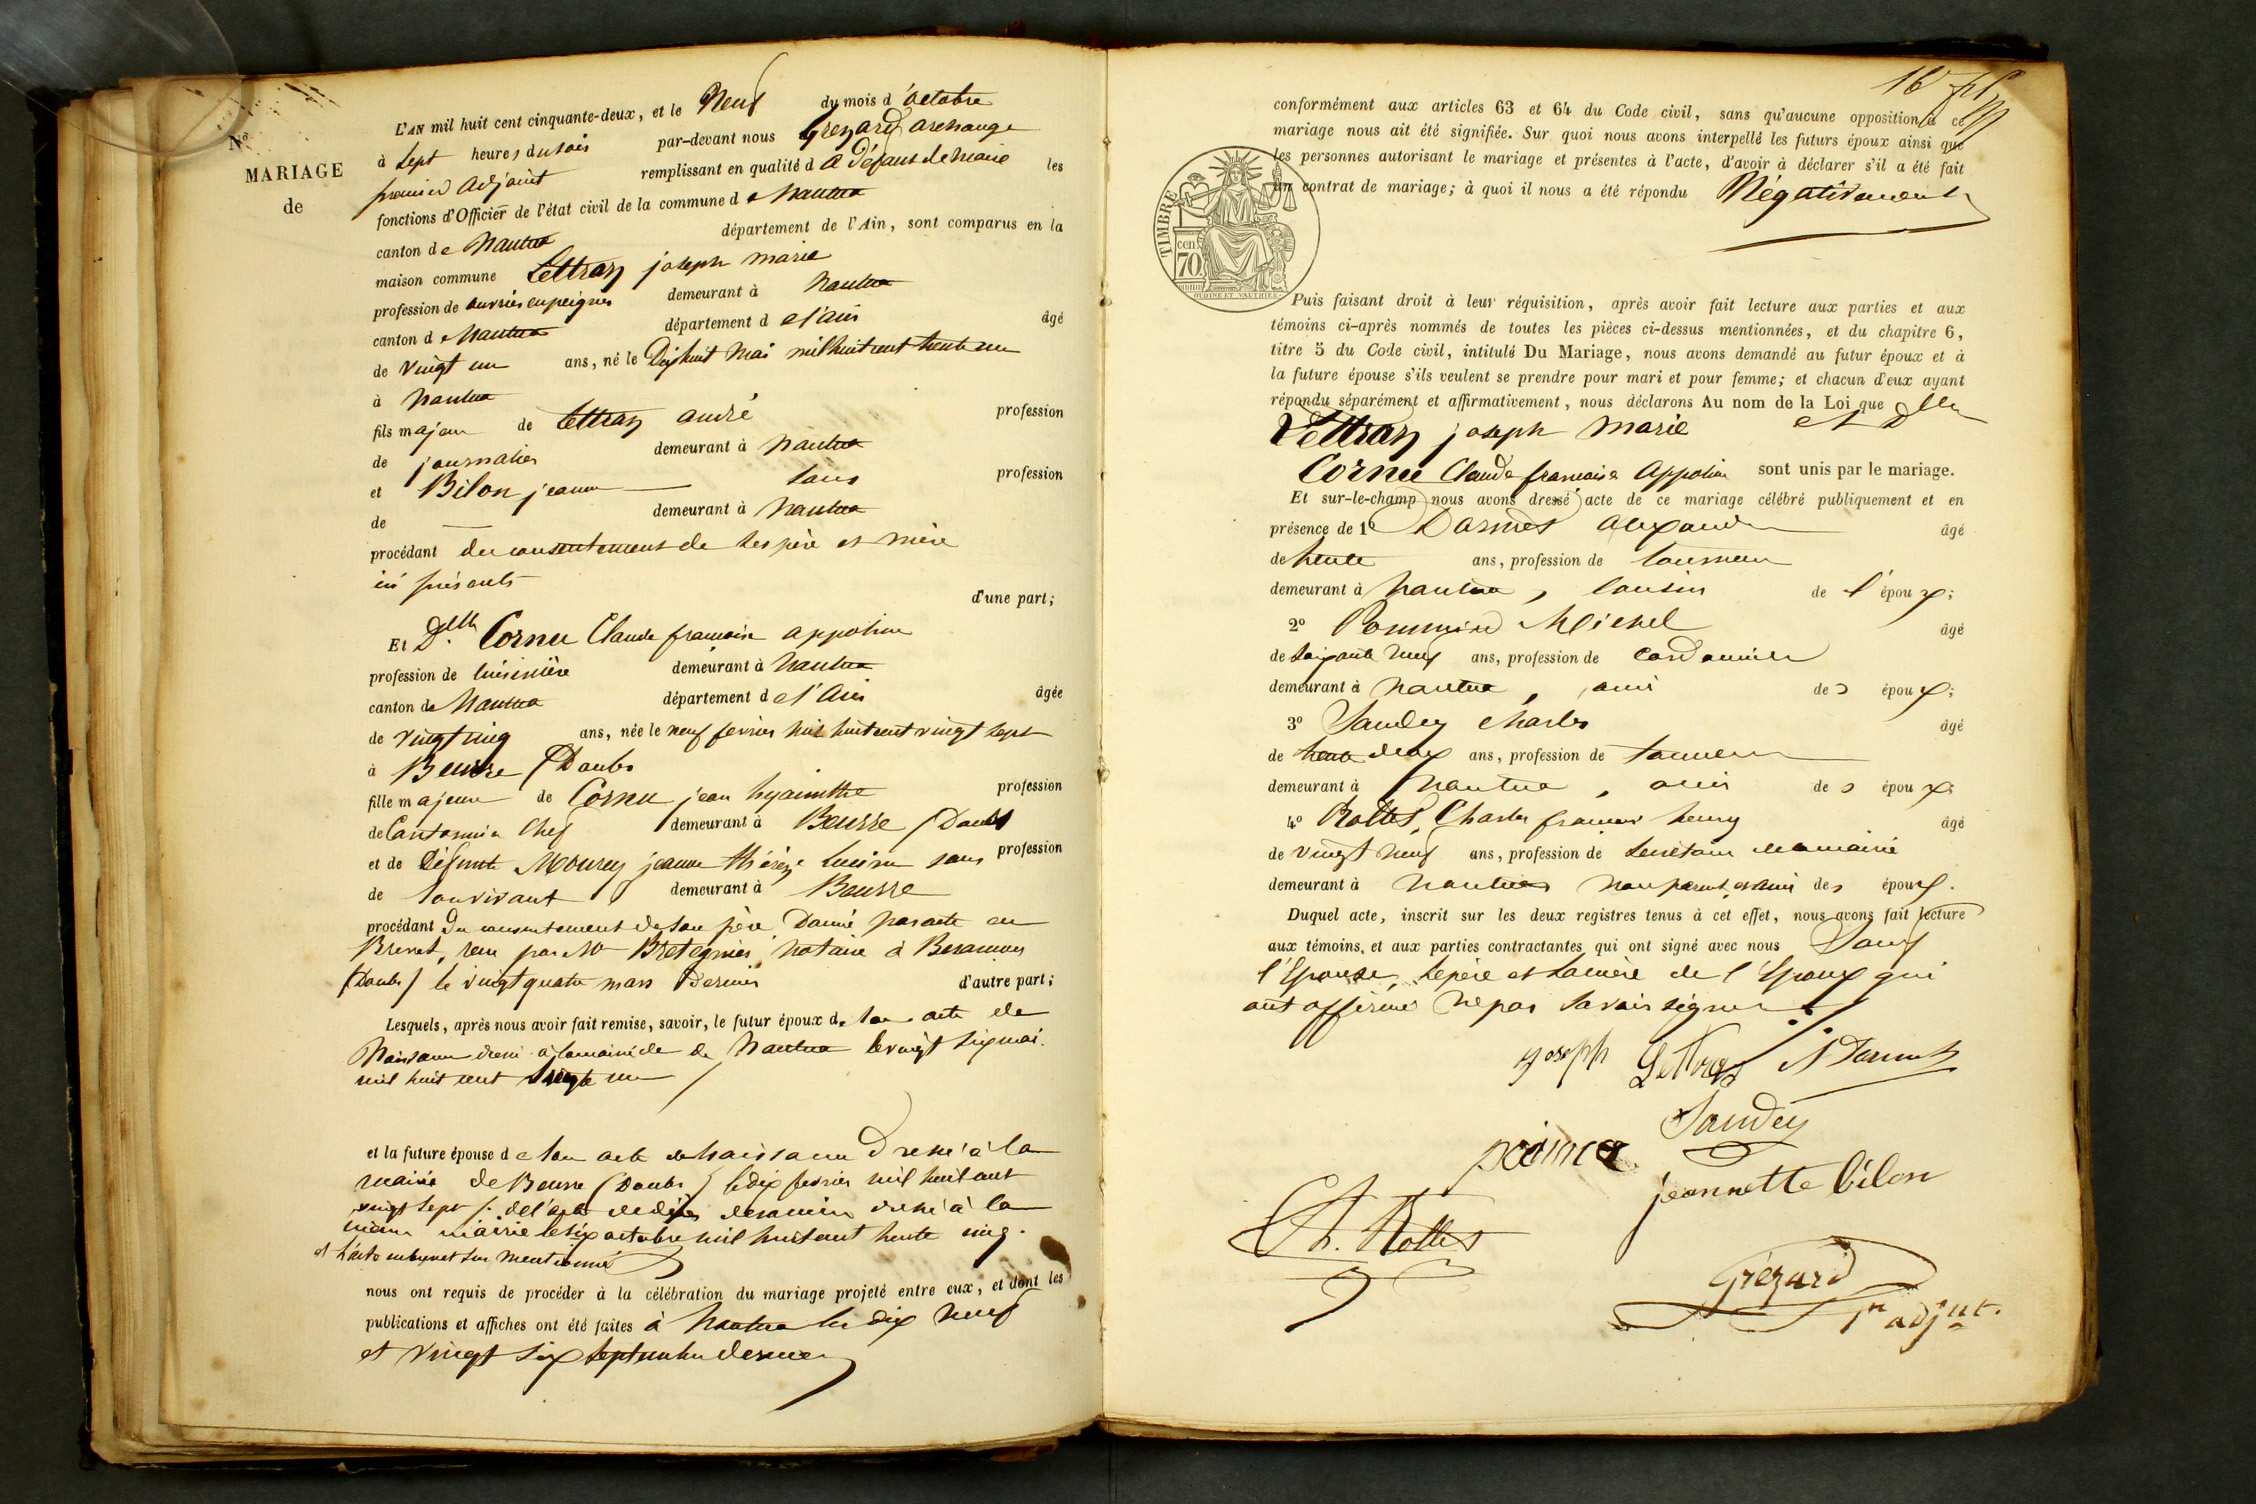 N°
MARIAGE
de
L'AN mil huit cent cinquante-deux, et le Neuf du mois d'octobre
à Sept heures du soir par-devant nous Grezard archange
premier adjoint remplissant en qualité d à Défaut de maire les
fonctions d'Officier de l'état civil de la commune de Nantua
canton de Nantua département de l'Ain, sont comparus en la
maison commune Lettraz joseph marie
profession de ouvrier en peignes demeurant à Nantua
canton de Nantua département de l'ain âgé
de vingt un ans, né le Dixhuit Mai mil huit cent trente un
à Nantua
fils majeur de Lettraz andré profession
de journalier demeurant à Nantua
et Bilon jeanne — sans profession
de — demeurant à Nantua
procédant du consentement de ses père et mère
ici présents
d'une part;
Et Dlle Cornu Claude françoise appoline
profession de cuisinière demeurant à Nantua
canton de Nantua département de l'Ain âgée
de vingt cinq ans, née le neuf fevrier mil huit cent vingt sept
à Beurre (Doubs
fille majeure de Cornu jean hyacinthe profession
de Cantonnier Chef demeurant à Beurre (Doubs
et de Défunte Mourey jeanne thérèze sans profession
de Son vivant demeurant à Beurre
procédant Du consentement de son père Donné par acte en
Brevet, reçu par Me Bretegnier notaire à Besançon
(Doubs) le vingt quatre mars Dernier d'autre part;
Lesquels, après nous avoir fait remise, savoir, le futur époux de Son acte de
Naissance dressé à la mairie de Nantua le vingt six mai
mil huit cent trente un
et la future épouse de Son acte de Naissance Dressé à la
mairie de Beurre (Doubs) le dix fevrier mil huit cent
vingt sept; de l'acte de décès de sa mère dressé à la
même mairie le six octobre mil huit cent trente cinq.
et l'acte en brevet sus mentionné
nous ont requis de procéder à la célébration du mariage projeté entre eux, et dont les
publications et affiches ont été faites à Nantua les dix neuf
et vingt six Septembre dernier
16
conformément aux articles 63 et 64 du Code civil, sans qu'aucune opposition à ce
mariage nous ait été signifiée. Sur quoi nous avons interpellé les futurs époux ainsi que
les personnes autorisant le mariage et présentes à l'acte, d'avoir à déclarer s'il a été fait
un contrat de mariage; à quoi il nous a été répondu Négativement
TIMBRE
cen.
70
OUDINE ET VAUTHIER
Puis faisant droit à leur réquisition, après avoir fait lecture aux parties et aux
témoins ci-après nommés de toutes les pièces ci-dessus mentionnées, et du chapitre 6,
titre 5 du Code civil, intitulé Du Mariage, nous avons demandé au futur époux et à
la future épouse s'ils veulent se prendre pour mari et pour femme; et chacun d'eux ayant
répondu séparément et affirmativement, nous déclarons Au nom de la Loi que
Lettraz joseph marie et Dlle
Cornu Claude francoise Appoline sont unis par le mariage.
Et sur-le-champ nous avons dressé acte de ce mariage célébré publiquement et en
présence de 1° Darmet alexandre âgé
de trente ans, profession de tourneur
demeurant à Nantua, Cousin de l'époux;
2° Pommier Michel âgé
de Soixante neuf ans, profession de Cordonnier
demeurant à Nantua, ami des époux;
3° Jandey Charles âgé
de trente deux ans, profession de tanneur
demeurant à Nantua, ami des époux
4° Rottet, Charles francois henry âgé
de vingt neuf ans, profession de Secrétaire de la mairie
demeurant à Nantua non parent, et ami des époux.
Duquel acte, inscrit sur les deux registres tenus à cet effet, nous avons fait lecture
aux témoins, et aux parties contractantes qui ont signé avec nous Sauf
l'Epouse, le père et la mère de l'Epoux qui
ont affirmé ne pas savoir signer
joseph Lettraz Darmet
Jandey
jeannette bilon
Ch. Rottet
Grézard
1er adjnt.